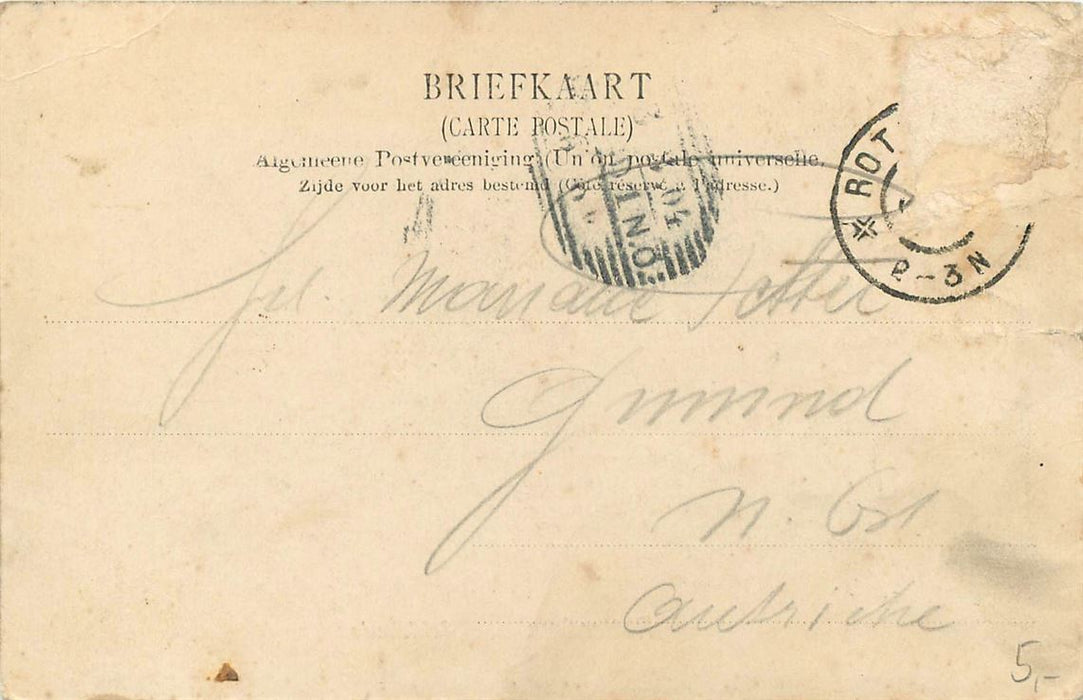 BRIEFKAART
(CARTE POSTALE)
Algemeene Postvereeniging (Union postale universelle,
Zijde voor het adres bestemd (Côté réservé à l'adresse.)
ROT
2-3N
04
N.Ö.
Frl. Mariane
Gmünd
N. Öst
Autriche
5,-